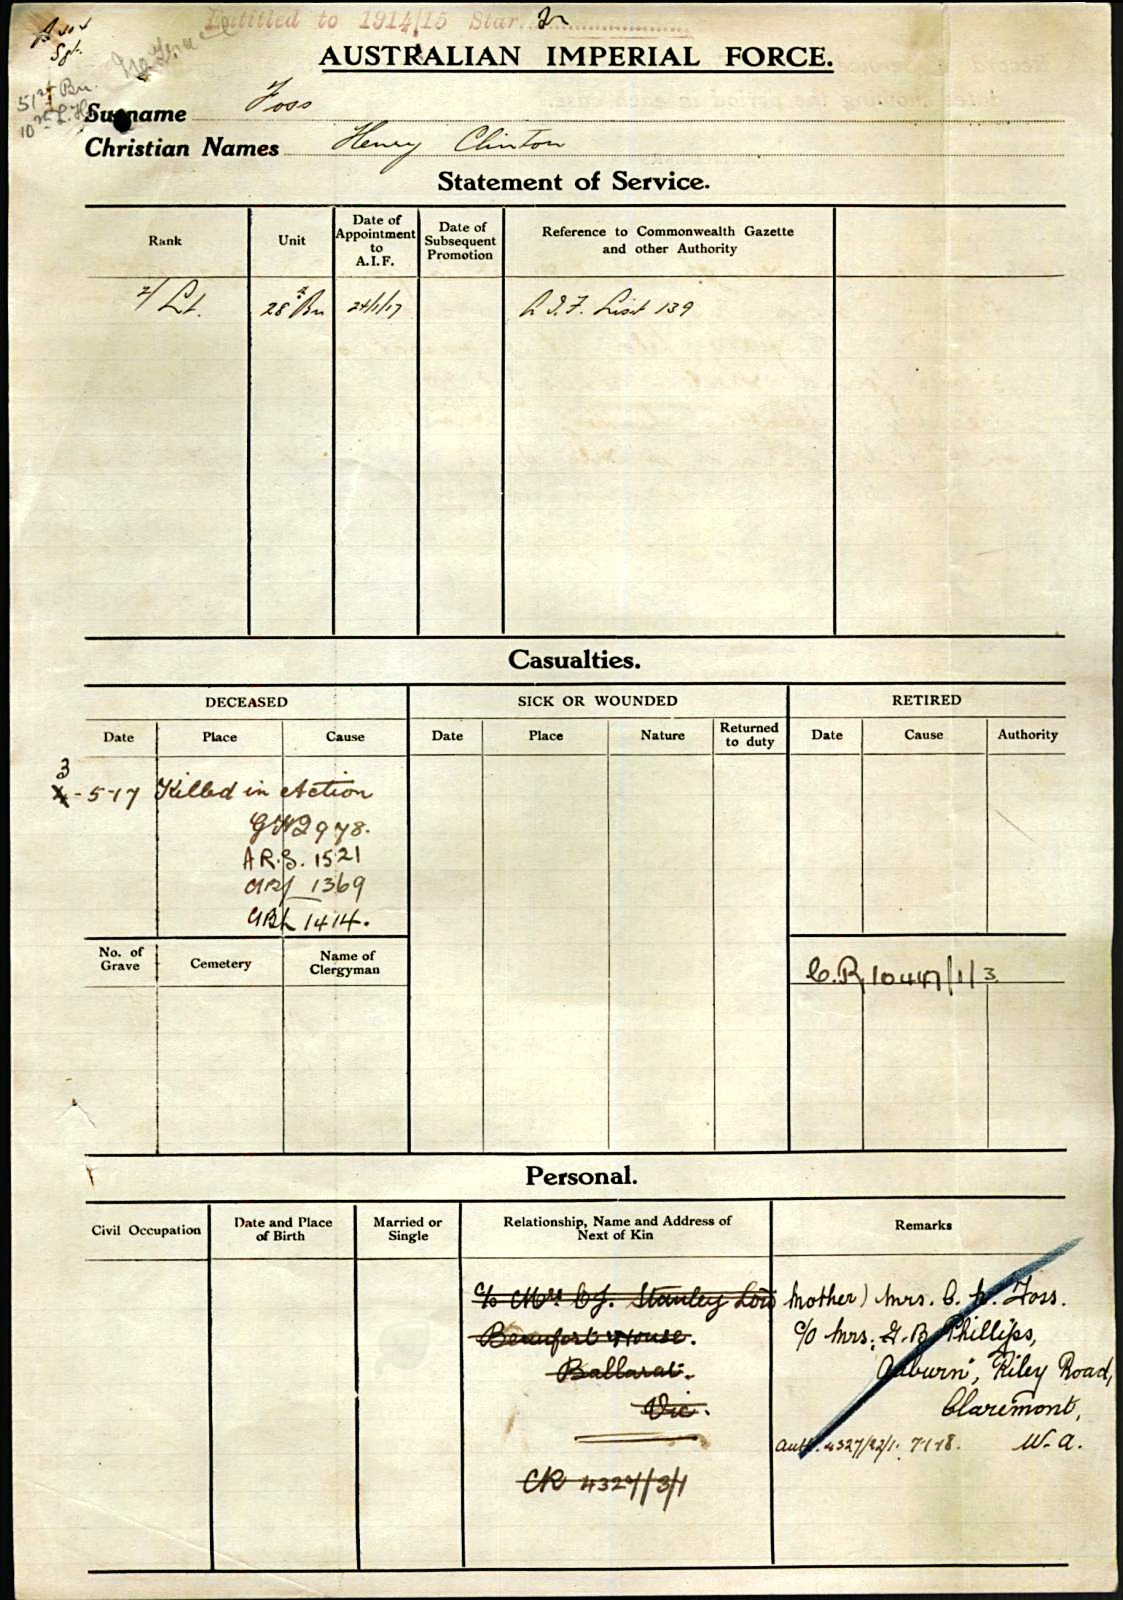 Entitled to 1914/15 Star.
Sgt.
51st Bn.
10th L.H.
AUSTRALIAN IMPERIAL FORCE.
Surname Foss
Christian Names Henry Clinton
Statement of Service.
Rank
Unit
Date of Appointment to A.I.F.
Date of Subsequent Promotion
Reference to Commonwealth Gazette and other Authority
2/Lt. 28th Bn 24/1/17 A.I.F. List 139
Casualties.
DECEASED SICK OR WOUNDED RETIRED
Date Place Cause Date Place Nature Returned to duty Date Cause Authority
3
4-5-17 Killed in Action
2978.
A.R.S. 1521
1369
1414.
No. of Grave Cemetery Name of Clergyman
C.R. 10447/1/3
Personal.
Civil Occupation
Date and Place of Birth
Married or Single
Relationship, Name and Address of Next of Kin
Remarks
c/o Mrs C.J. Stanley Low
Beaufort House.
Ballarat.
Vic.
CR 4327/3/1
Mother) Mrs. C. H. Foss.
c/o Mrs. G. B. Phillips,
Auburn, Riley Road,
Claremont,
Auth. 4327/22/1. 7-1-18. W.A.